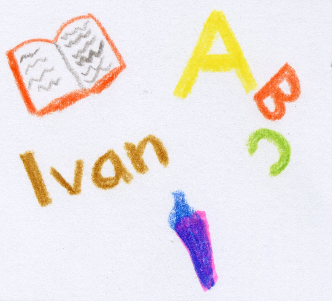 A
B
C
Ivan